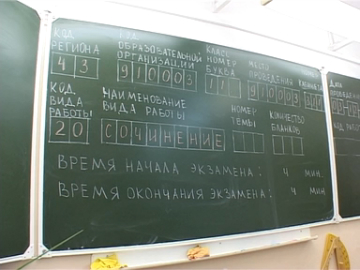 КОД РЕГИОНА
43
КОД ОБРАЗОВАТЕЛЬНОЙ ОРГАНИЗАЦИИ
910003
КЛАСС НОМЕР БУКВА
11
МЕСТО ПРОВЕДЕНИЯ
910003
КОД ВИДА РАБОТЫ
20
НАИМЕНОВАНИЕ ВИДА РАБОТЫ
СОЧИНЕНИЕ
НОМЕР ТЕМЫ
КОЛИЧЕСТВО БЛАНКОВ
ДАТА
ВРЕМЯ НАЧАЛА ЭКЗАМЕНА: Ч МИН
ВРЕМЯ ОКОНЧАНИЯ ЭКЗАМЕНА: Ч МИН